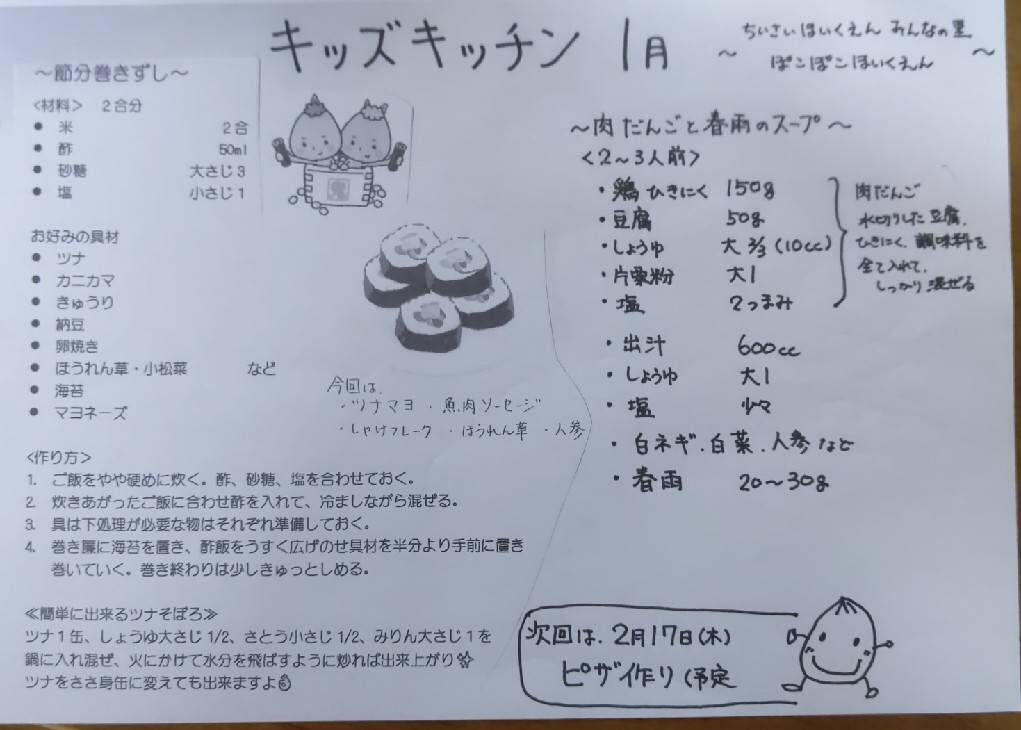 キッズキッチン 1月
～ ちいさいほいくえん みんなの里
ぽこぽこほいくえん ～
～節分巻きずし～
<材料> 2合分
● 米 2合
● 酢 50ml
● 砂糖 大さじ3
● 塩 小さじ1
お好みの具材
● ツナ
● カニカマ
● きゅうり
● 納豆
● 卵焼き
● ほうれん草・小松菜 など
● 海苔
● マヨネーズ
今回は、
・ツナマヨ ・魚肉ソーセージ
・しゃけフレーク ・ほうれん草 ・人参
<作り方>
1. ご飯をやや硬めに炊く。酢、砂糖、塩を合わせておく。
2. 炊きあがったご飯に合わせ酢を入れて、冷ましながら混ぜる。
3. 具は下処理が必要な物はそれぞれ準備しておく。
4. 巻き簾に海苔を置き、酢飯をうすく広げのせ具材を半分より手前に置き
巻いていく。巻き終わりは少しきゅっとしめる。
≪簡単に出来るツナそぼろ≫
ツナ1缶、しょうゆ大さじ1/2、さとう小さじ1/2、みりん大さじ1を
鍋に入れ混ぜ、火にかけて水分を飛ばすように炒れば出来上がり
ツナをささ身缶に変えても出来ますよ
～肉だんごと春雨のスープ～
<2～3人前>
・鶏ひきにく 150g
・豆腐 50g
・しょうゆ 大2/3(10cc)
・片栗粉 大1
・塩 2つまみ
肉だんご
水切りした豆腐、
ひきにく、調味料を
全て入れて、
しっかり混ぜる
・出汁 600cc
・しょうゆ 大1
・塩 少々
・白ネギ・白菜・人参など
・春雨 20～30g
次回は、2月17日(木)
ピザ作り(予定
鬼